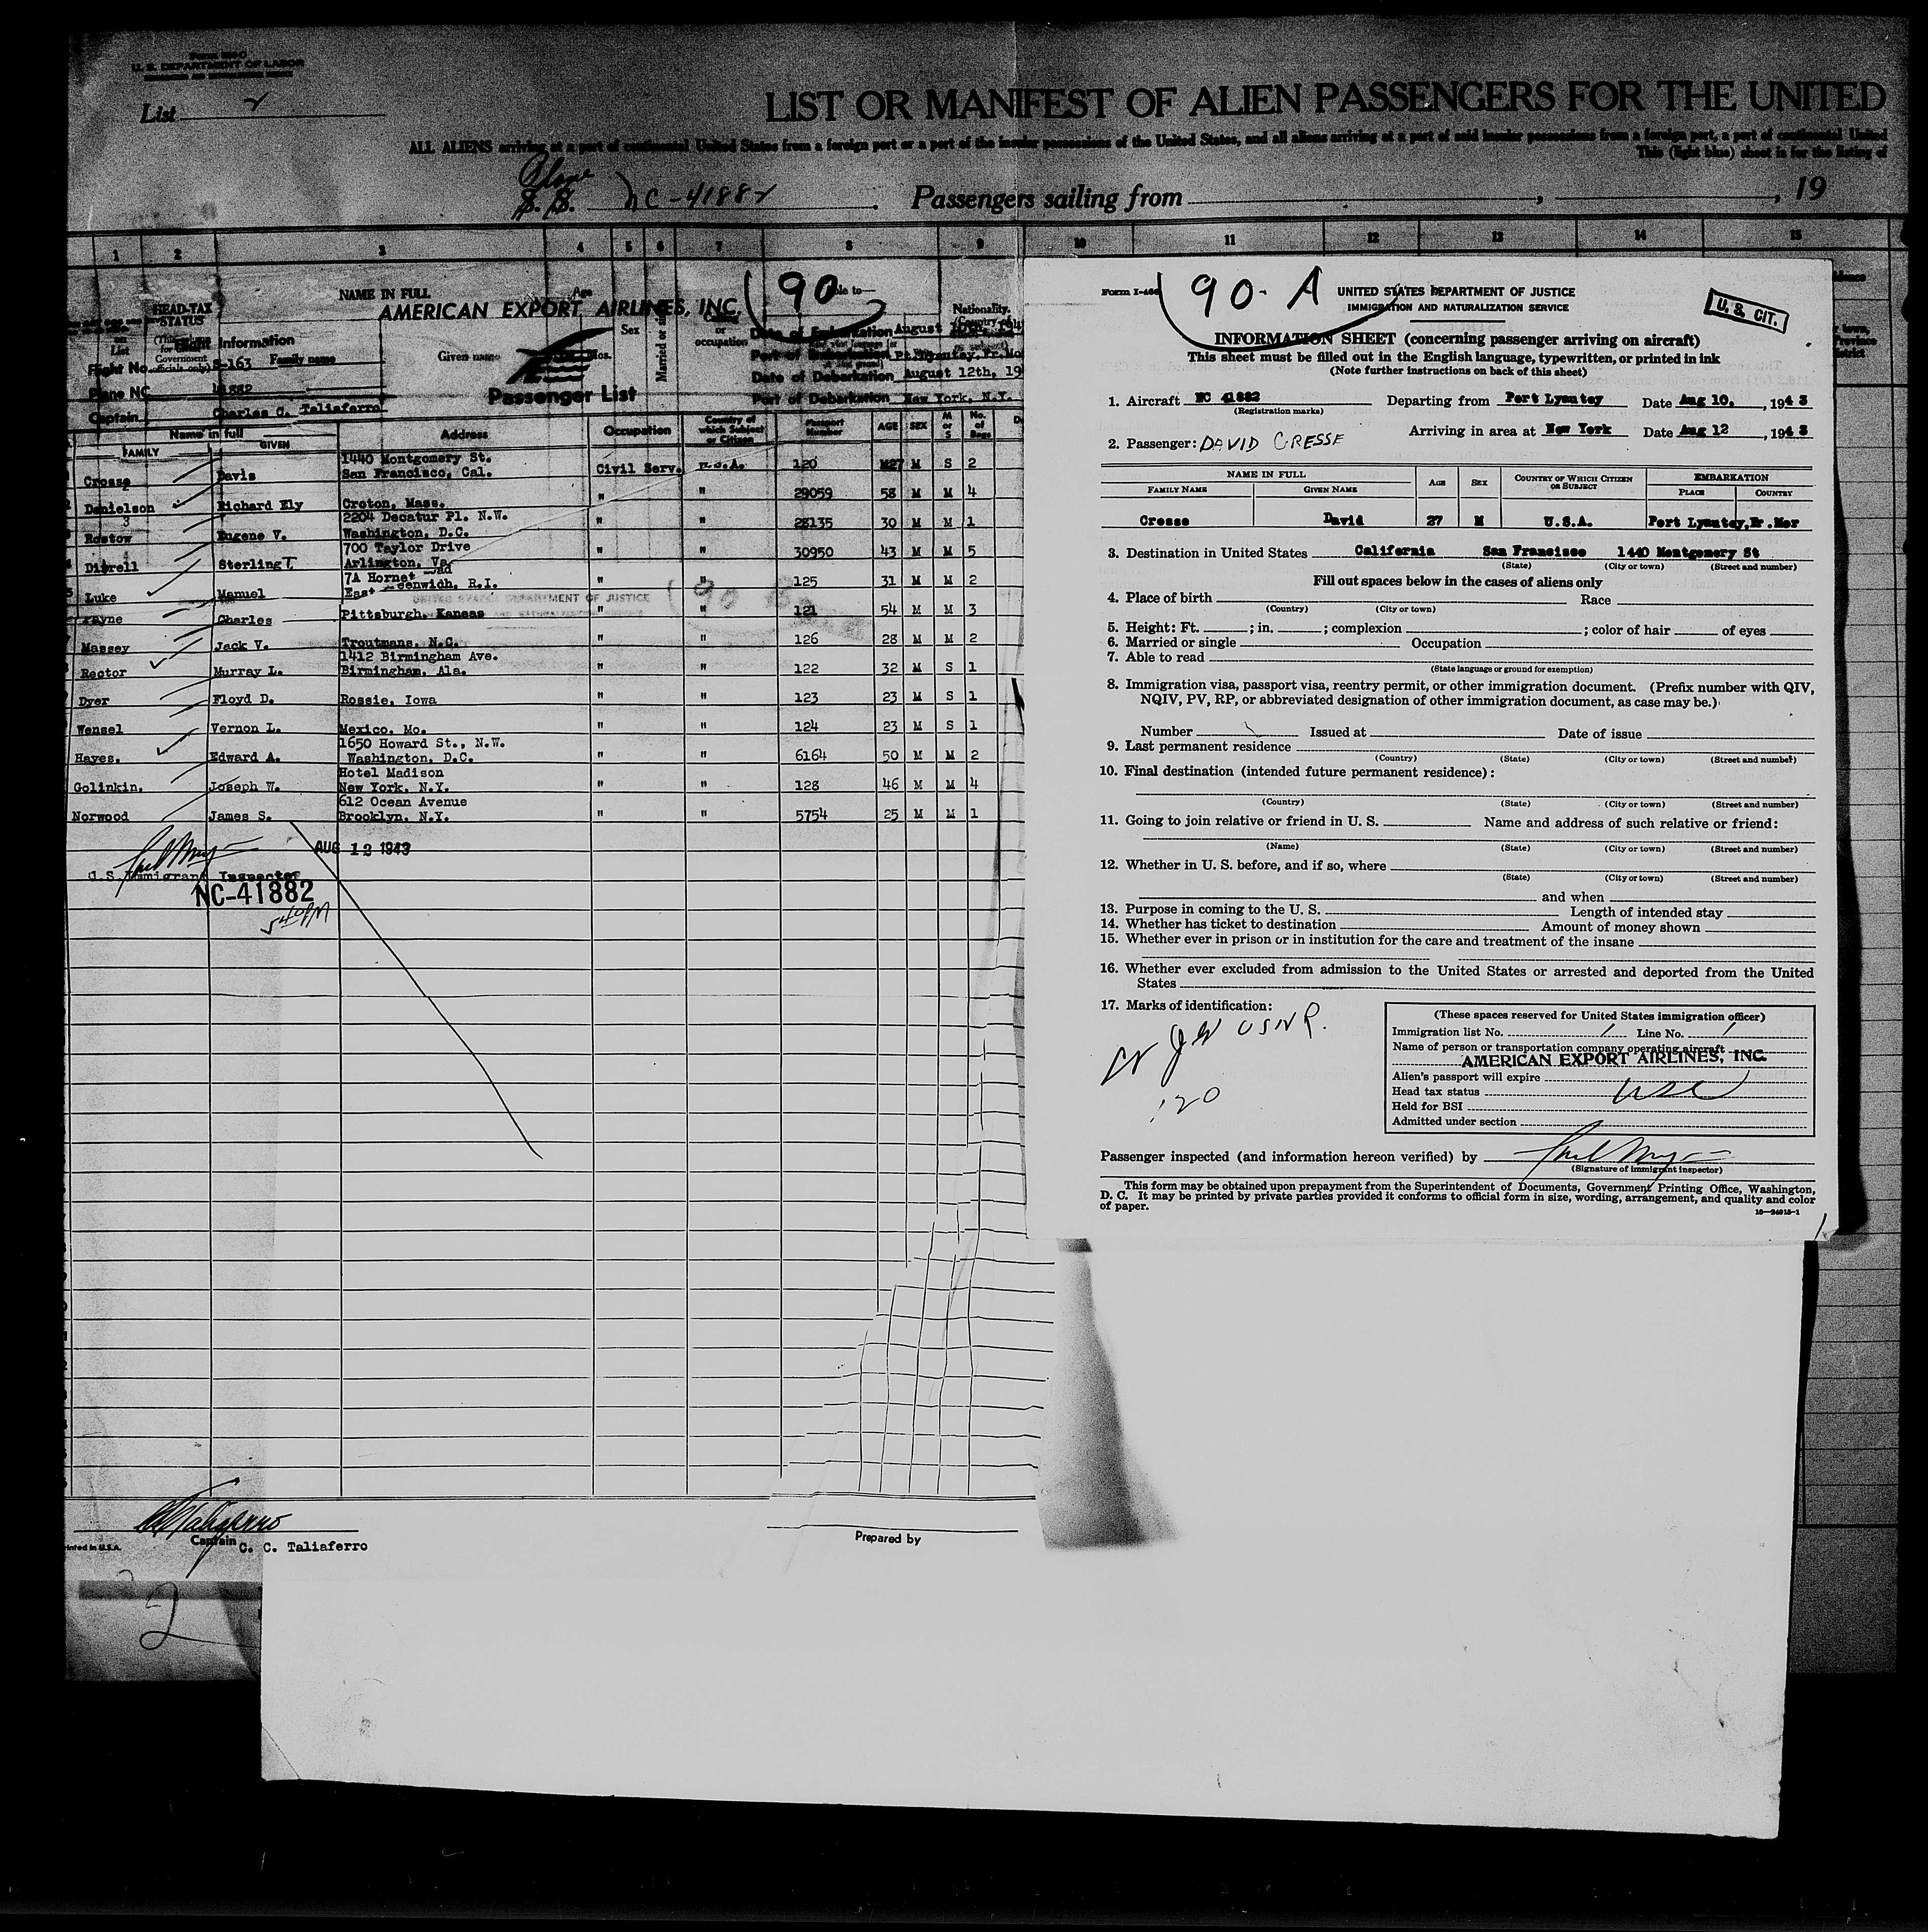 U. S. DEPARTMENT OF LABOR
List 2
LIST OR MANIFEST OF ALIEN PASSENGERS FOR THE UNITED
ALL ALIENS arriving at a port of continental United States from a foreign port or a port of the insular possessions of the United States, and all aliens arriving at a port of said insular possessions from a foreign port, a port of continental United
This (light blue) sheet is for the listing of
Plane
S. S. NC-41882 Passengers sailing from , , 19
1 2 3 4 5 6 7 8 9 10 11 12 13 14 15
HEAD-TAX STATUS
NAME IN FULL
Family name Given name
Age Sex
occupation
Nationality.
90
AMERICAN EXPORT AIRLINES, INC.
Passenger List
Flight Information
Flight No. S-163
Plane NC 41882
Captain Charles C. Taliaferro
Date of Embarkation August
Port of Embarkation Pt. Lyautey, Fr. Mo
Date of Debarkation August 12th, 19
Port of Debarkation New York, N.Y.
Name in full
FAMILY GIVEN Address Occupation Country of which Subject or Citizen Passport Number AGE SEX M or S No. of Bags
Crosse Davis 1440 Montgomery St. San Francisco, Cal. Civil Serv. U.S.A. 120 27 M S 2
Danielson Richard Ely Groton, Mass. " " 29059 58 M M 4
Rostow Eugene V. 2204 Decatur Pl. N.W. Washington, D.C. " " 28135 30 M M 1
Sterling T. 700 Taylor Drive Arlington, Va. " " 30950 43 M M 5
Luke Manuel 7A Hornet East Greenwich, R.I. " " 125 31 M M 2
Payne Charles Pittsburgh, Kansas " " 121 54 M M 3
Massey Jack V. Troutmans, N.C. " " 126 28 M M 2
Rector Murray L. 1412 Birmingham Ave. Birmingham, Ala. " " 122 32 M S 1
Dyer Floyd D. Rossie, Iowa " " 123 23 M S 1
Wensel Vernon L. Mexico, Mo. " " 124 23 M S 1
Hayes. Edward A. 1650 Howard St., N.W. Washington, D.C. " " 6164 50 M M 2
Golinkin. Joseph W. Hotel Madison New York, N.Y. " " 128 46 M M 4
Norwood James S. 612 Ocean Avenue Brooklyn, N.Y. " " 5754 25 M M 1
AUG 12 1943
U.S. Immigrant Inspector
NC-41882
540PM
Captain C. C. Taliaferro
Prepared by
Printed in U.S.A.
2
90-A
UNITED STATES DEPARTMENT OF JUSTICE
IMMIGRATION AND NATURALIZATION SERVICE
U. S. CIT.
INFORMATION SHEET (concerning passenger arriving on aircraft)
This sheet must be filled out in the English language, typewritten, or printed in ink
(Note further instructions on back of this sheet)
1. Aircraft NC 41882 Departing from Port Lyautey Date Aug 10, , 1943
(Registration marks)
Arriving in area at New York Date Aug 12 , 1943
2. Passenger: DAVID CRESSE
NAME IN FULL AGE SEX COUNTRY OF WHICH CITIZEN OR SUBJECT EMBARKATION
FAMILY NAME GIVEN NAME PLACE COUNTRY
Cresse David 27 M U.S.A. Port Lyautey, Fr. Mor
3. Destination in United States California San Francisco 1440 Montgomery St
(State) (City or town) (Street and number)
Fill out spaces below in the cases of aliens only
4. Place of birth Race
(Country) (City or town)
5. Height: Ft. ; in. ; complexion ; color of hair of eyes
6. Married or single Occupation
7. Able to read
(State language or ground for exemption)
8. Immigration visa, passport visa, reentry permit, or other immigration document. (Prefix number with QIV,
NQIV, PV, RP, or abbreviated designation of other immigration document, as case may be.)
Number Issued at Date of issue
9. Last permanent residence
(Country) (State) (City or town) (Street and number)
10. Final destination (intended future permanent residence):
(Country) (State) (City or town) (Street and number)
11. Going to join relative or friend in U. S. Name and address of such relative or friend:
(Name) (State) (City or town) (Street and number)
12. Whether in U. S. before, and if so, where
(State) (City or town) (Street and number)
and when
13. Purpose in coming to the U. S. Length of intended stay
14. Whether has ticket to destination Amount of money shown
15. Whether ever in prison or in institution for the care and treatment of the insane
16. Whether ever excluded from admission to the United States or arrested and deported from the United
States
17. Marks of identification:
USNR.
120
(These spaces reserved for United States immigration officer)
Immigration list No. 1 Line No. 1
Name of person or transportation company operating aircraft
AMERICAN EXPORT AIRLINES, INC.
Alien's passport will expire
Head tax status USC
Held for BSI
Admitted under section
Passenger inspected (and information hereon verified) by
(Signature of immigrant inspector)
This form may be obtained upon prepayment from the Superintendent of Documents, Government Printing Office, Washington,
D. C. It may be printed by private parties provided it conforms to official form in size, wording, arrangement, and quality and color
of paper.